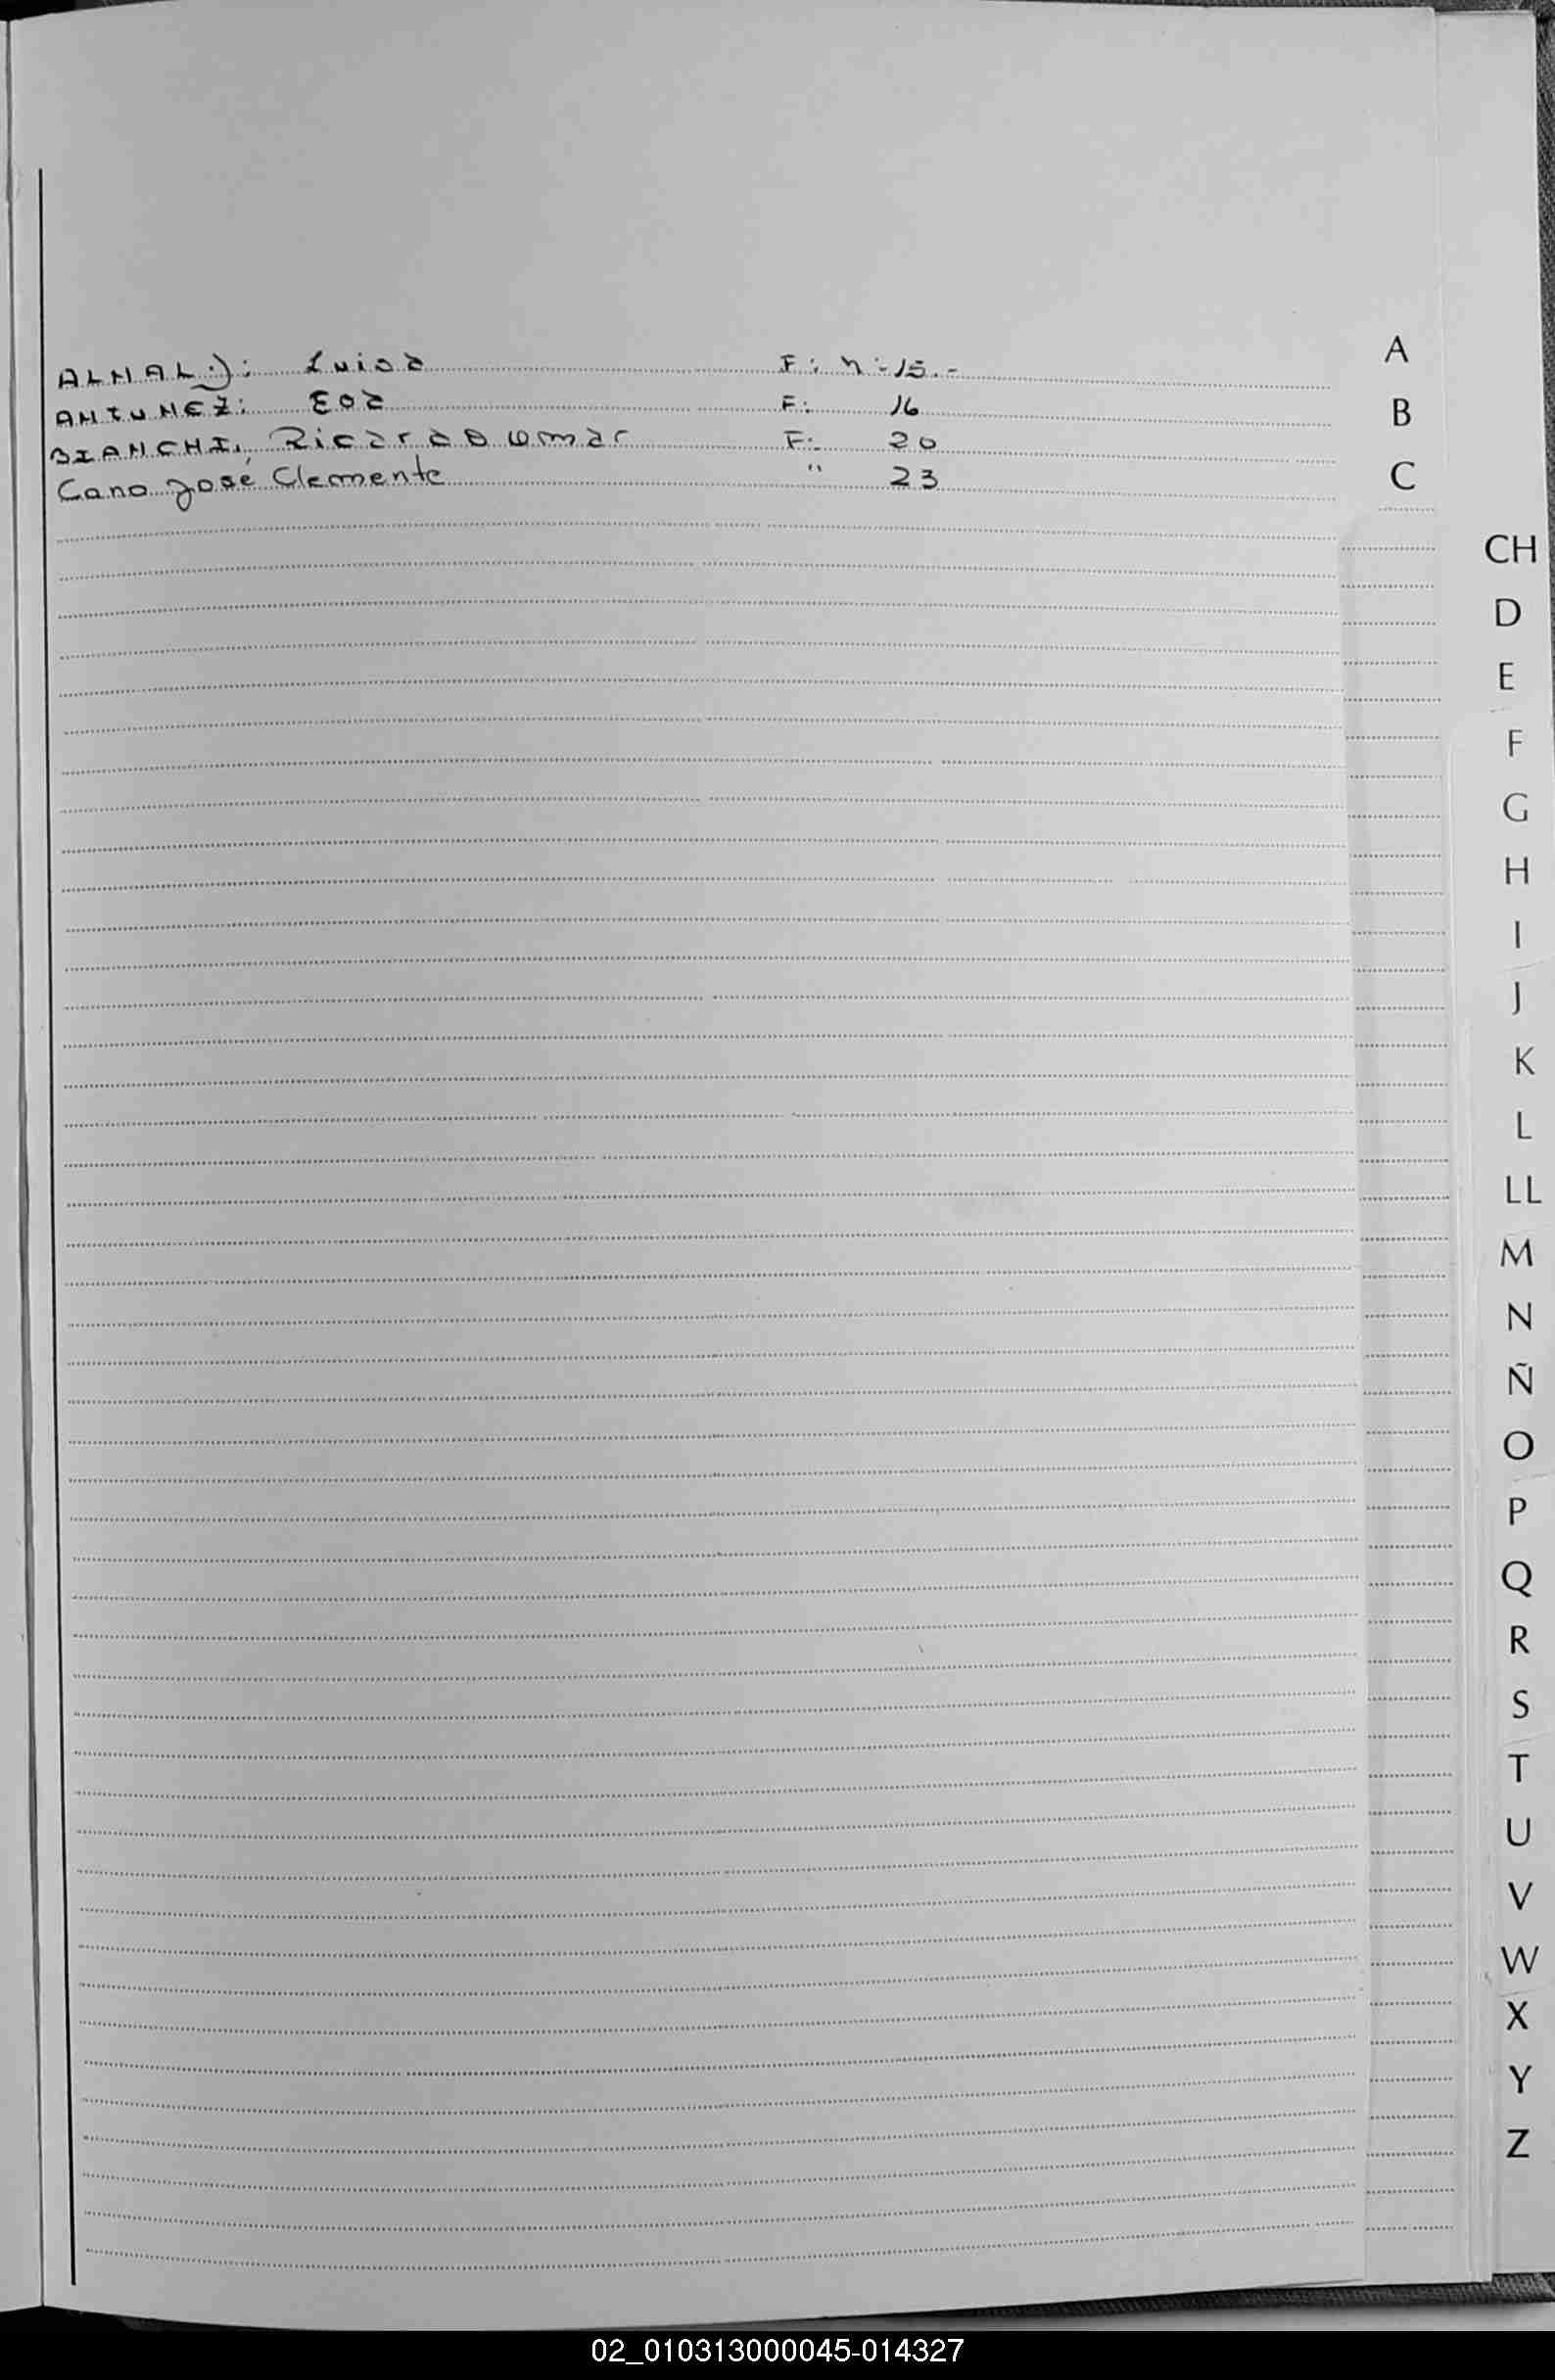 Luisa F: Nº 15.-
ANTUNEZ: F: 16
BIANCHI, Ricardo Omar F: 20
Cano José Clemente " 23
A
B
C
CH
D
E
F
G
H
I
J
K
L
LL
M
N
Ñ
O
P
Q
R
S
T
U
V
W
X
Y
Z
02_010313000045-014327